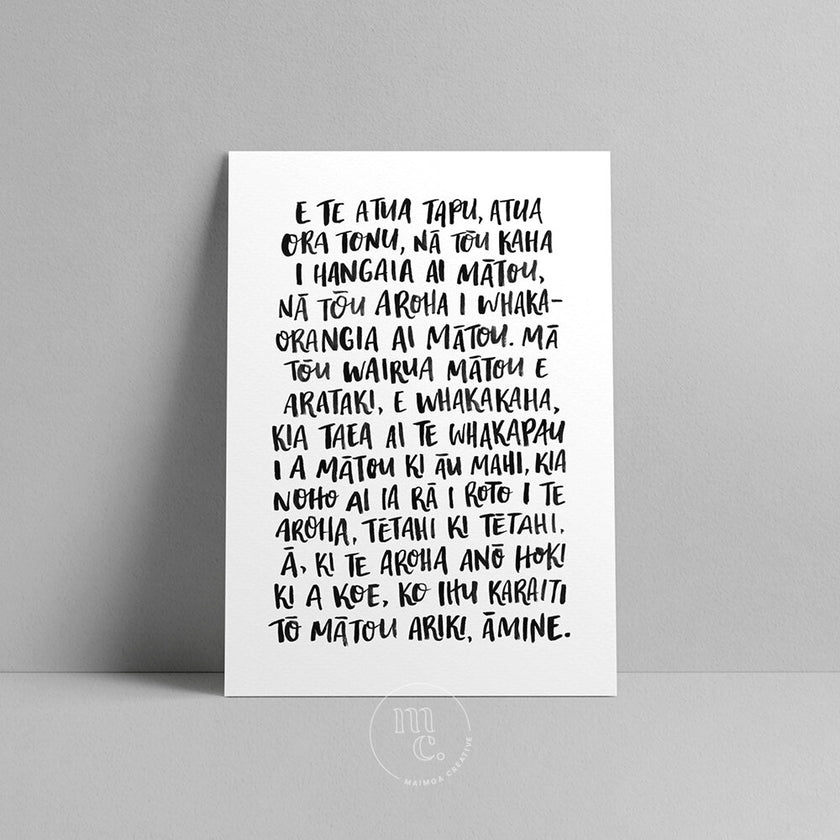 E TE ATUA TAPU, ATUA
ORA TONU, NĀ TŌU KAHA
I HANGAIA AI MĀTOU,
NĀ TŌU AROHA I WHAKA-
ORANGIA AI MĀTOU. MĀ
TŌU WAIRUA MĀTOU E
ARATAKI, E WHAKAKAHA,
KIA TAEA AI TE WHAKAPAU
I A MĀTOU KI ĀU MAHI, KIA
NOHO AI IA RĀ I ROTO I TE
AROHA, TĒTAHI KI TĒTAHI,
Ā, KI TE AROHA ANŌ HOKI
KI A KOE, KO IHU KARAITI
TŌ MĀTOU ARIKI, ĀMINE.
MC.
MAIMOA CREATIVE